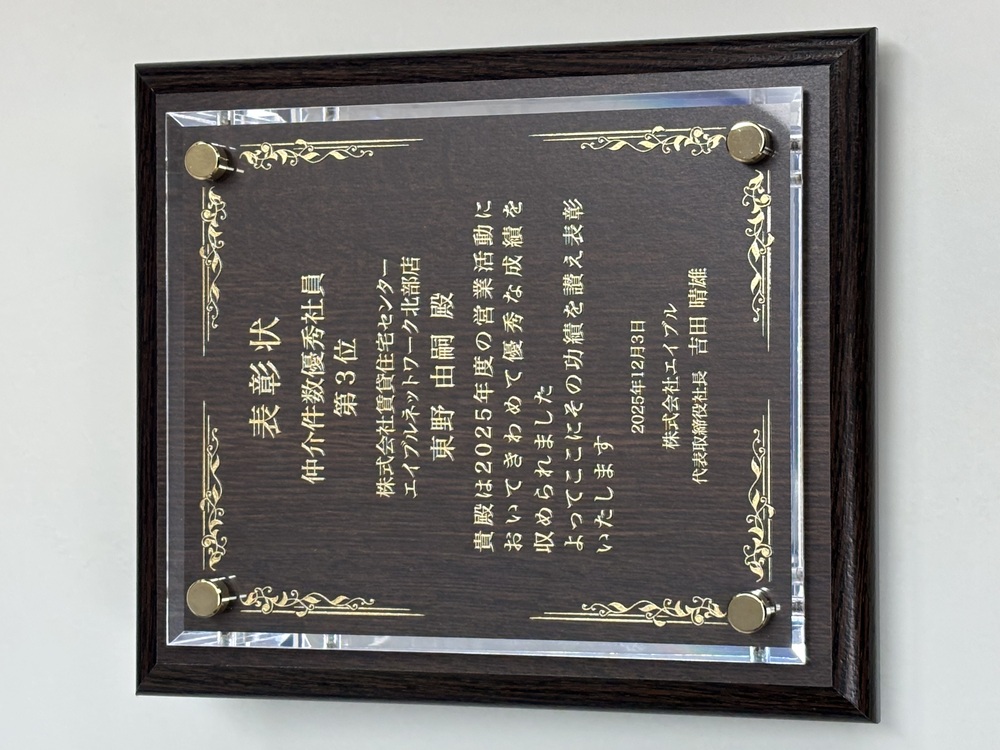 表彰状
仲介件数優秀社員
第3位
株式会社賃貸住宅センター
エイブルネットワーク北部店
東野 由嗣 殿
貴殿は2025年度の営業活動に
おいてきわめて優秀な成績を
収められました
よってここにその功績を讃え表彰
いたします
2025年12月3日
株式会社エイブル
代表取締役社長 吉田 晴雄